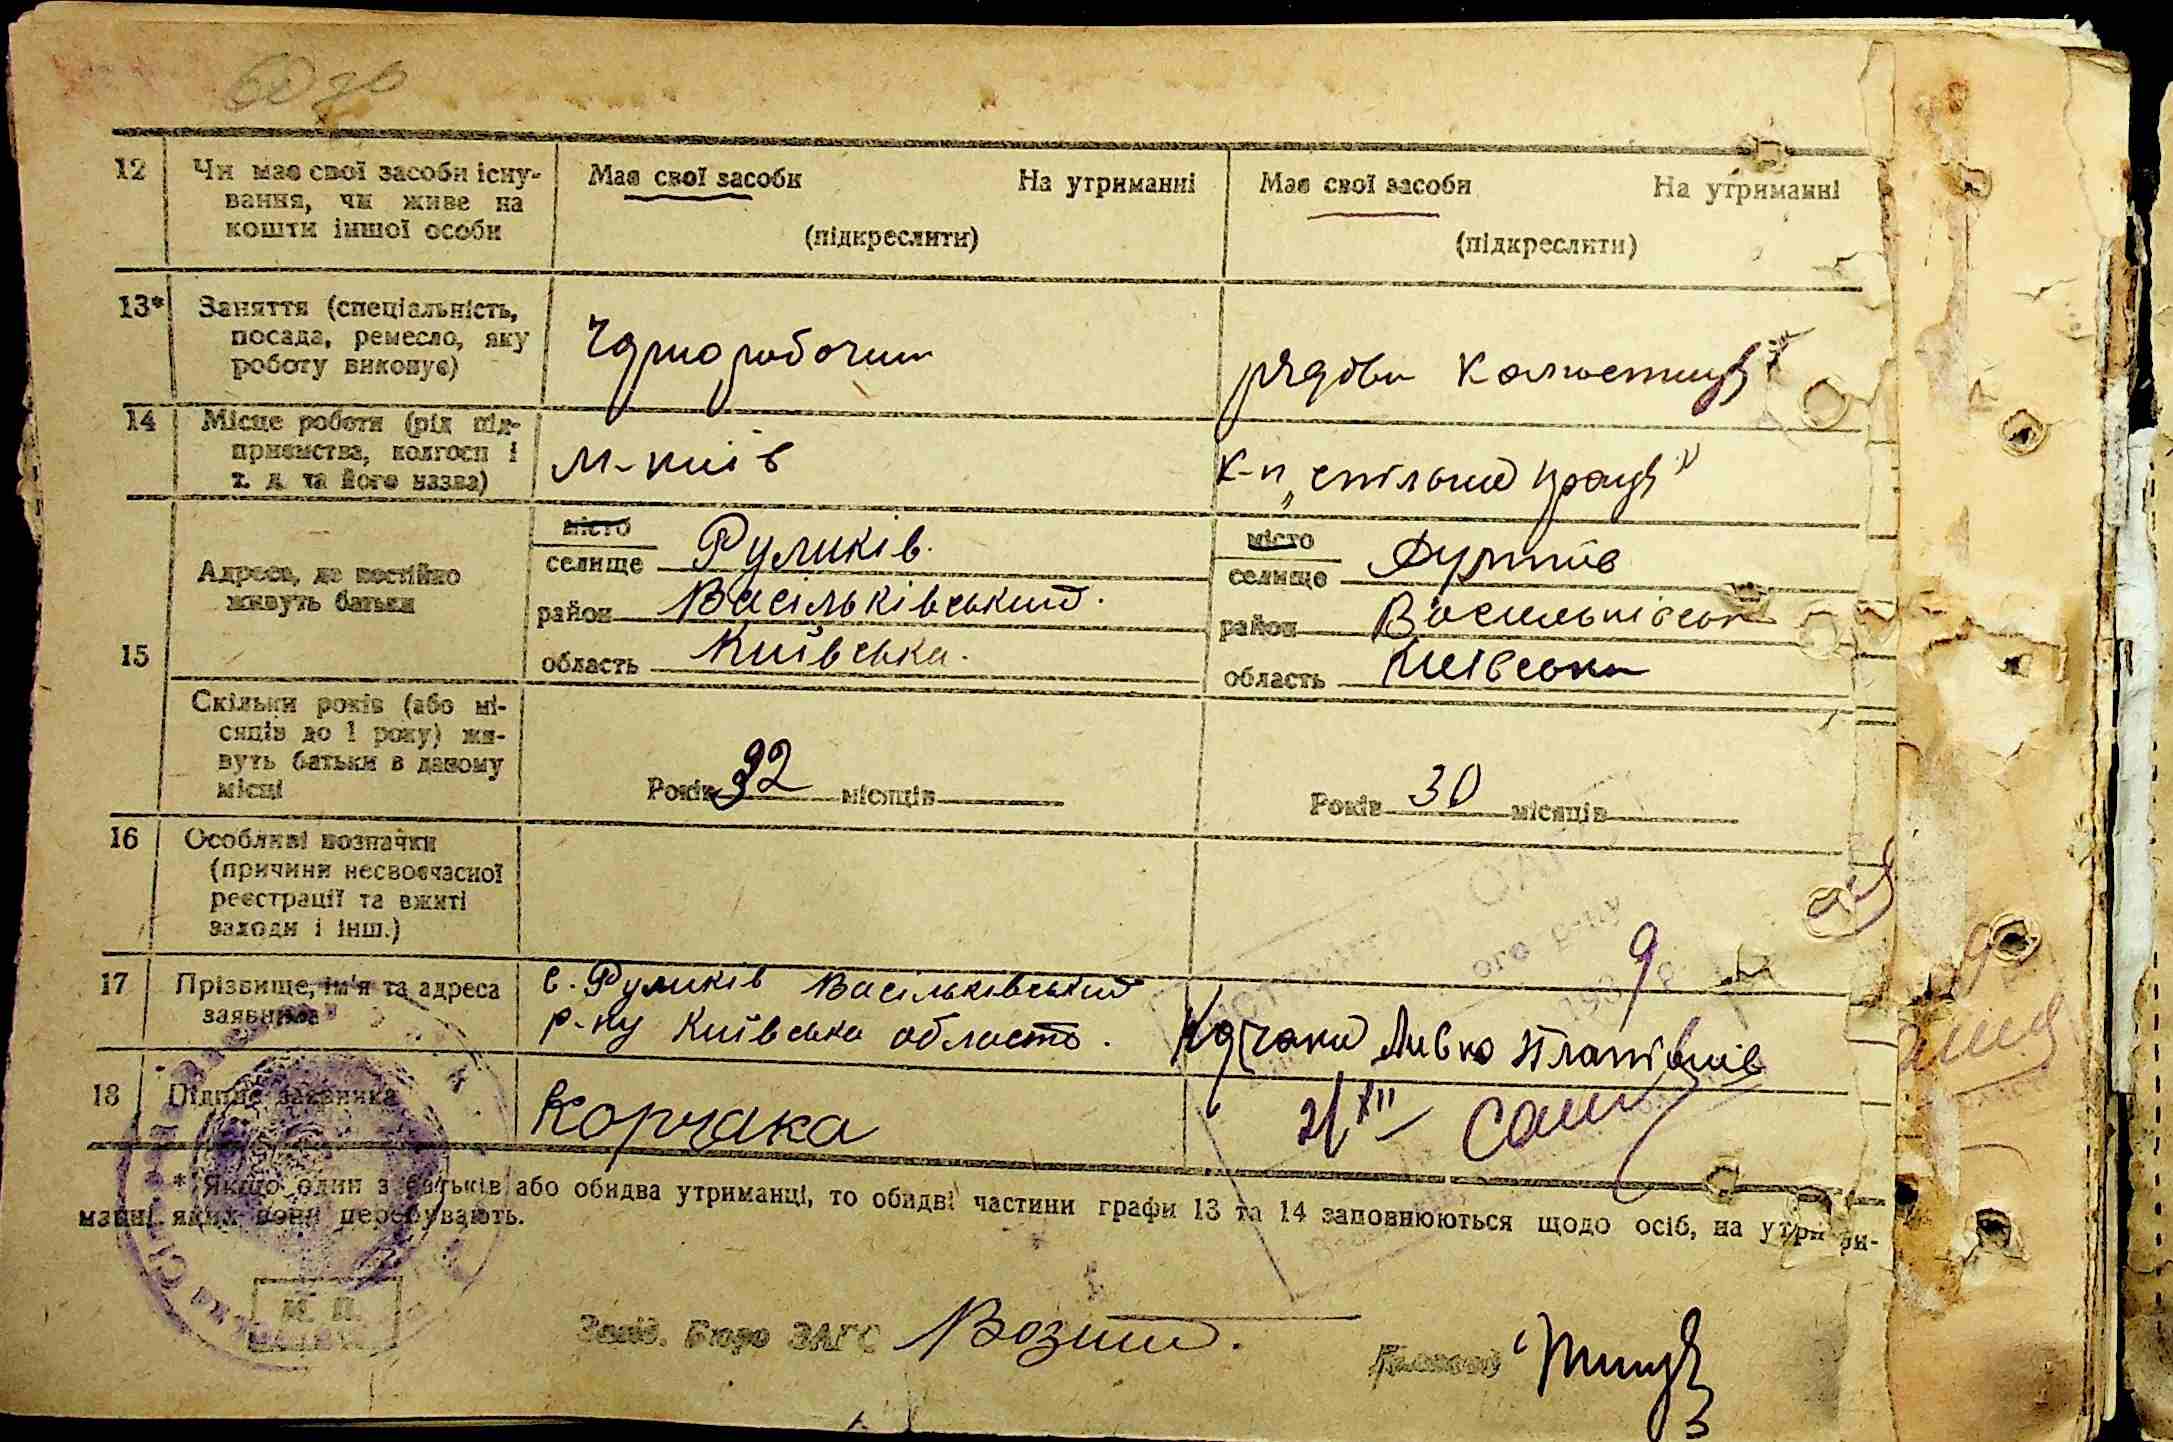 12 Чи має свої засоби існу- Має свої засоби На утриманні Має свої засоби На утриманні
вання, чи живе на
кошти іншої особи (підкреслити) (підкреслити)
13* Заняття (спеціальність,
посада, ремесло, яку
роботу виконує) Чорноробочий рядови
14 Місце роботи (рід під-
приємства, колгосп і м-київ к-п „спільна праця"
т. д. та його назва)
місто Руликів. місто
селище селище
Адреса, де постійно
живуть батьки район Васільківський. район Васильківськ
15 область Київська. область Київська
Скільки років (або мі-
сяців до 1 року) жи-
вуть батьки в даному
місці Років 32 місяців Років 30 місяців
16 Особливі позначки
(причини несвоєчасної
реєстрації та вжиті
заходи і інш.)
17 Прізвище, ім'я та адреса с. Руликів Васільківський
заявника р-ну Київська область.
18 Підпис заявника Корчака 21/XII
* Якщо один з батьків або обидва утриманці, то обидві частини графи 13 та 14 заповнюються щодо осіб, на утри-
манні яких вони перебувають.
М. П.
Завід. Бюро ЗАГС